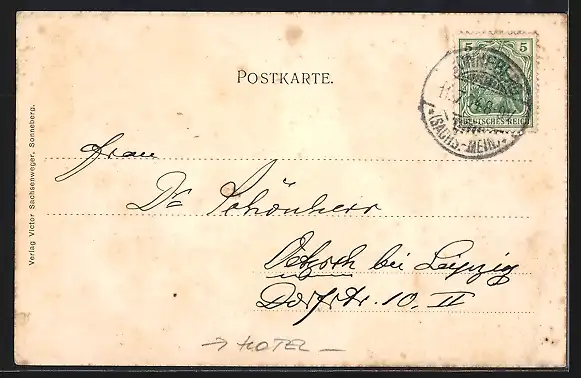 POSTKARTE.
5 5
DEUTSCHES REICH
SONNEBERG
(SACHS.-MEIN.)
Frau
Dr Schönherr
Oetzsch bei Leipzig
Dorfstr. 10. II
→ HOTEL —
Verlag Victor Sachsenweger, Sonneberg.